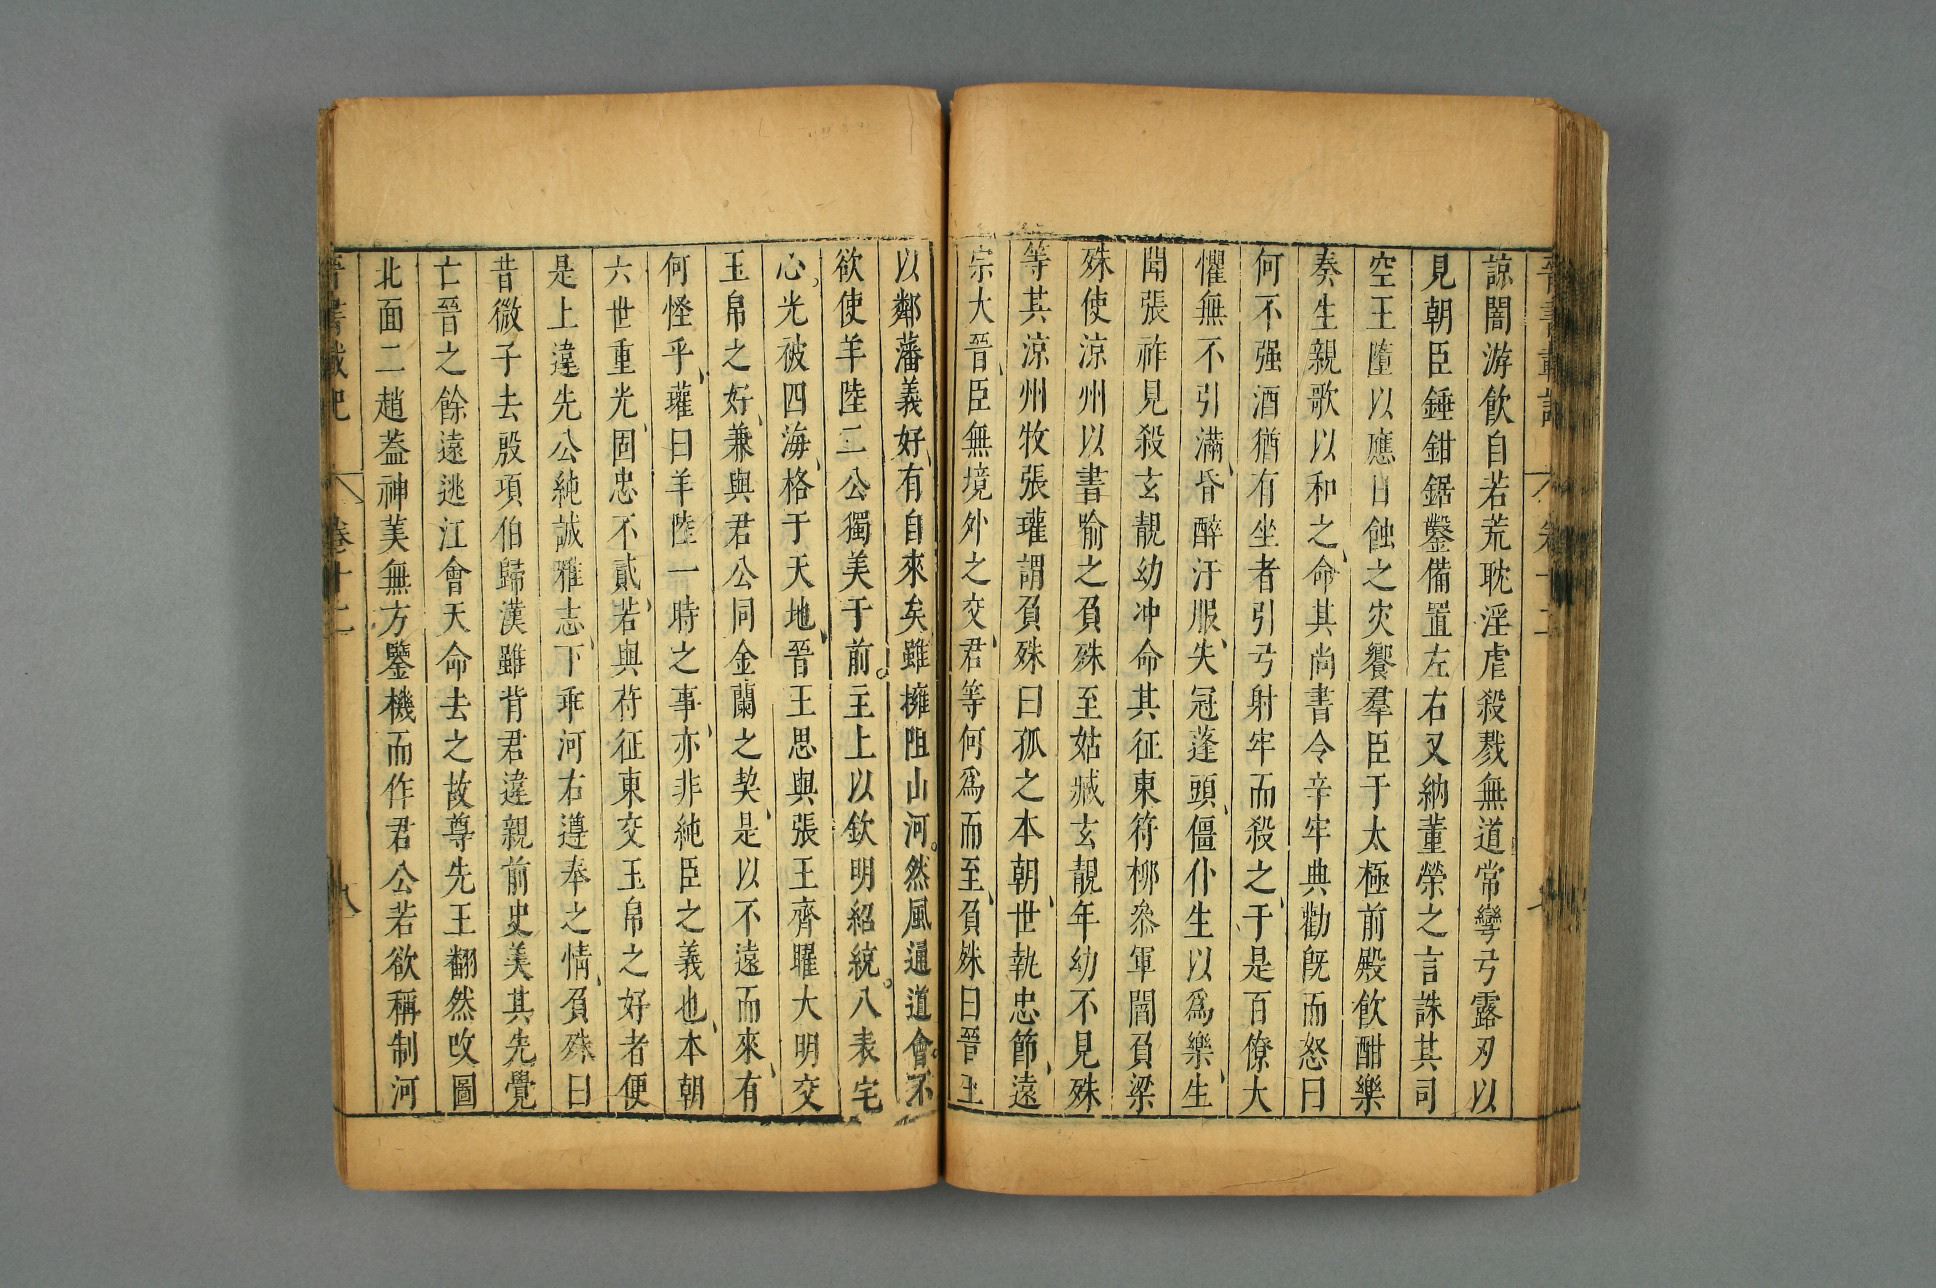 晉書載記 卷十二 七
諒闇游飲自若荒耽淫虐殺戮無道常彎弓露刃以
見朝臣錘鉗鋸鑿備置左右又納董榮之言誅其司
空王墮以應日蝕之灾饗羣臣于太極前殿飲酣樂
奏生親歌以和之命其尚書令辛牢典勸旣而怒曰
何不强酒猶有坐者引弓射牢而殺之于是百僚大
懼無不引滿昏醉汙服失冠蓬頭僵仆生以爲樂生
聞張祚見殺玄靚幼冲命其征東符栁叅軍閻負梁
殊使涼州以書喻之負殊至姑臧玄靚年幼不見殊
等其涼州牧張瓘謂負殊曰孤之本朝世執忠節遠
宗大晉臣無境外之交君等何爲而至負殊曰晉王
以鄰藩義好有自來矣雖擁阻山河然風通道會不
欲使羊陸二公獨美于前主上以欽明紹統八表宅
心光被四海格于天地晉王思與張王齊曜大明交
玉帛之好兼與君公同金蘭之契是以不遠而來有
何怪乎瓘曰羊陸一時之事亦非純臣之義也本朝
六世重光固忠不貳若與苻征東交玉帛之好者便
是上違先公純誠雅志下乖河右遵奉之情負殊曰
昔微子去殷項伯歸漢雖背君違親前史美其先覺
亡晉之餘遠逃江會天命去之故尊先王翻然攺圖
北面二趙葢神筭無方鑒機而作君公若欲稱制河
晉書載記 卷十二 八